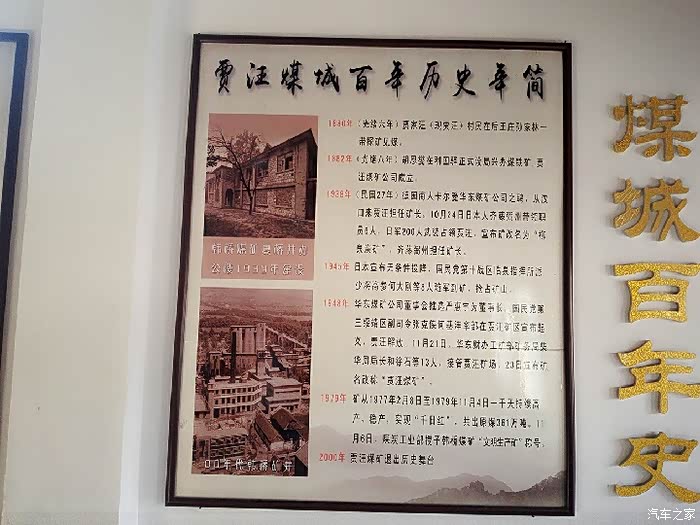 贾汪煤城百年历史年简
1880年（光绪六年）贾家汪（现贾汪）村民在后王庄孙家林一
带探矿见煤。
1882年（光绪八年）胡恩燮在利国驿正式设局兴办煤铁矿，贾
汪煤矿公司成立。
1938年（民国27年）德国商人卡尔登华东煤矿公司之聘，从汉
口来贾汪担任矿长。10月24日日本人齐藤弼州带领职
员8人，日军200人武装占领贾汪，宣布矿改名为“柳
泉炭矿”，齐藤弼州担任矿长。
1945年 日本宣布无条件投降，国民党第十战区临泉指挥所派
少将高参何大刚等8人随军到矿，抢占矿山。
1948年 华东煤矿公司董事会推选严惠宇为董事长，国民党第
三绥靖区副司令张克侠何基沣率部在贾汪矿区宣布起
义，贾汪解放，11月21日，华东财办工矿部
华周局长和谷石等13人，接管贾汪矿场，23日宣布矿
名改称“贾汪煤矿”。
1979年 矿从1977年2月8日至1979年11月4日一千天持续高
产、稳产，实现“千日红”，共出原煤381万吨。11
月6日，煤炭工业部授予韩桥煤矿“文明生产矿”称号。
2000年 贾汪煤矿退出历史舞台
韩桥煤矿夏桥井办
公楼1933年
年代
煤城百年史
汽车之家